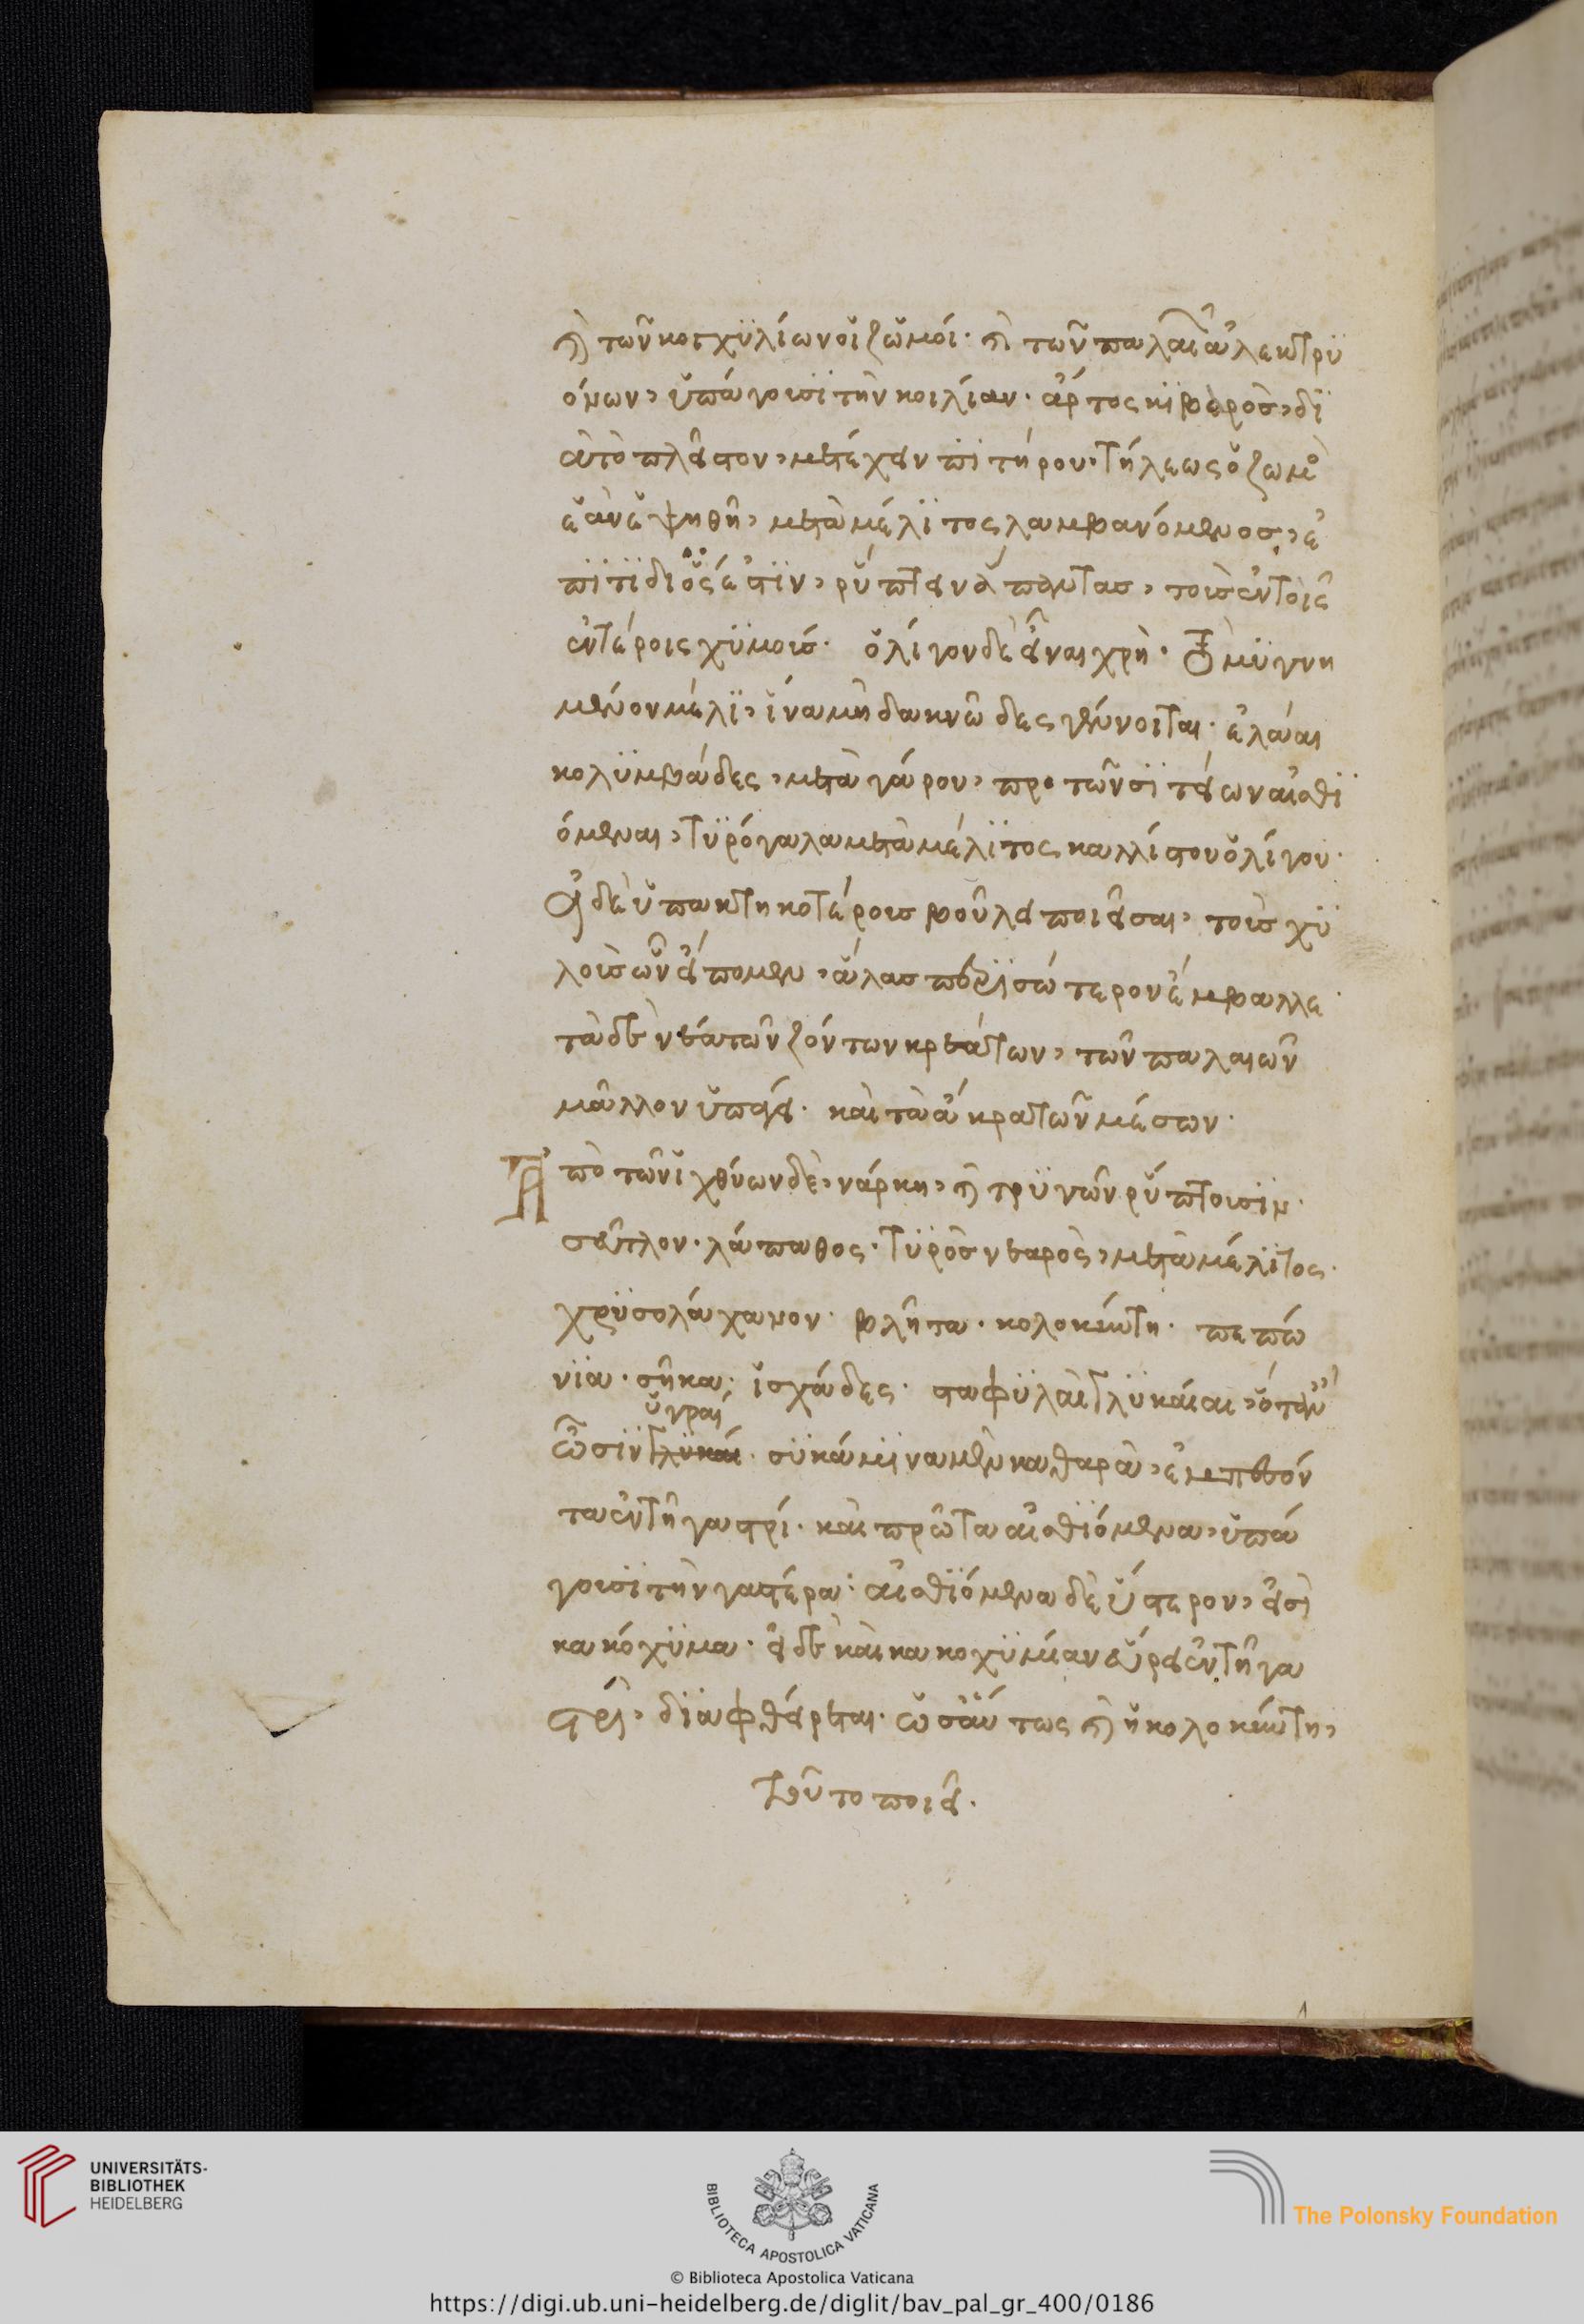 καὶ τῶν κογχϋλίων οἱ ζωμοί. καὶ τῶν παλαι ἀλεκτρυ
όνων, ὑπάγουσι τὴν κοιλίαν. ἄρτος κιβαρὸς, δι
ὰ τὸ πλεῖστον μετέχειν πιτήρου. τήλεως ὁ ζωμὸ
ἐὰν ἑψηθῆ, μετὰ μέλιτος λαμβανόμενος, ἐ
πιτίδιός ἐστιν, ῥύπτειν ἅπαντας, τοὺς ἐν τοῖς
ἐντέροις χυμούς. ὀλίγον δὲ εἶναι χρὴ. τὸ μιγνή
μενον μέλι, ἵνα μὴ δακνῶδες γένοιται. ἐλάαι
κολυμβάδες, μετὰ γάρου, πρὸ τῶν σιτείων αἰσθι
όμεναι, τυρόγαλα μετὰ μέλιτος καλλίστου ὀλίγου.
εἰ δὲ ὑπακτηκοτέρους βούλει ποιεῖσαι, τοὺς χυ
λοὺς ὧν εἴπομεν, ἅλας περισώτερον ἔμβαλλε.
τὰ δὲ νέα τῶν ζόντων κρεάτων, τῶν παλαιῶν
μᾶλλον ὑπάγει. καὶ τὰ ἄκρα τῶν μέσων.
Ἀπὸ τῶν ἰχθύων δὲ, νάρκη, καὶ τρυγῶν ῥύπτουσιν.
σεῦτλον. λάπαθος. τυρὸς νεαρὸς, μετὰ μέλιτος.
χρυσολάχανον. βλῆτα. κολοκύντη. πεπώ
νια. σῆκα, ἰσχάδες. σταφυλαὶ γλυκάιαι, ὅταν
ὑγραὶ
ὦσιν γλυκάι. συκάμινα μὲν καθαρὰ, ἐμπεσόν
τα ἐν τῆ γαστρί. καὶ πρῶτα αἰσθιόμενα, ὑπά
γουσι τὴν γαστέρα. αἰσθιόμενα δὲ ὕστερον, εἰσὶ
κακόχυμα. εἰ δὲ καὶ κακοχυμίαν εὕρει ἐν τῆ γα
στρὶ, διαφθείρεται. ὡσάυτως καὶ ἡ κολοκύντη,
τοῦτο ποιεῖ.
UNIVERSITÄTS-
BIBLIOTHEK
HEIDELBERG
BIBLIOTECA APOSTOLICA VATICANA
The Polonsky Foundation
© Biblioteca Apostolica Vaticana
https://digi.ub.uni-heidelberg.de/diglit/bav_pal_gr_400/0186